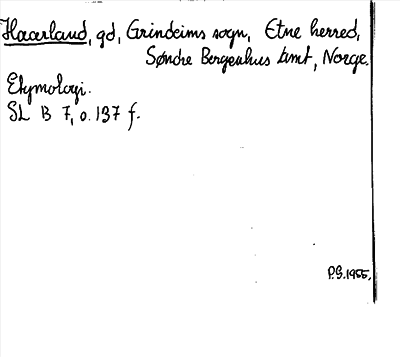 Haaerland, gd, Grindeims sogn, Etne herred,
Søndre Bergenhus Amt, Norge.
Etymologi.
SL B 7, s. 137 f.
P.G. 1955.